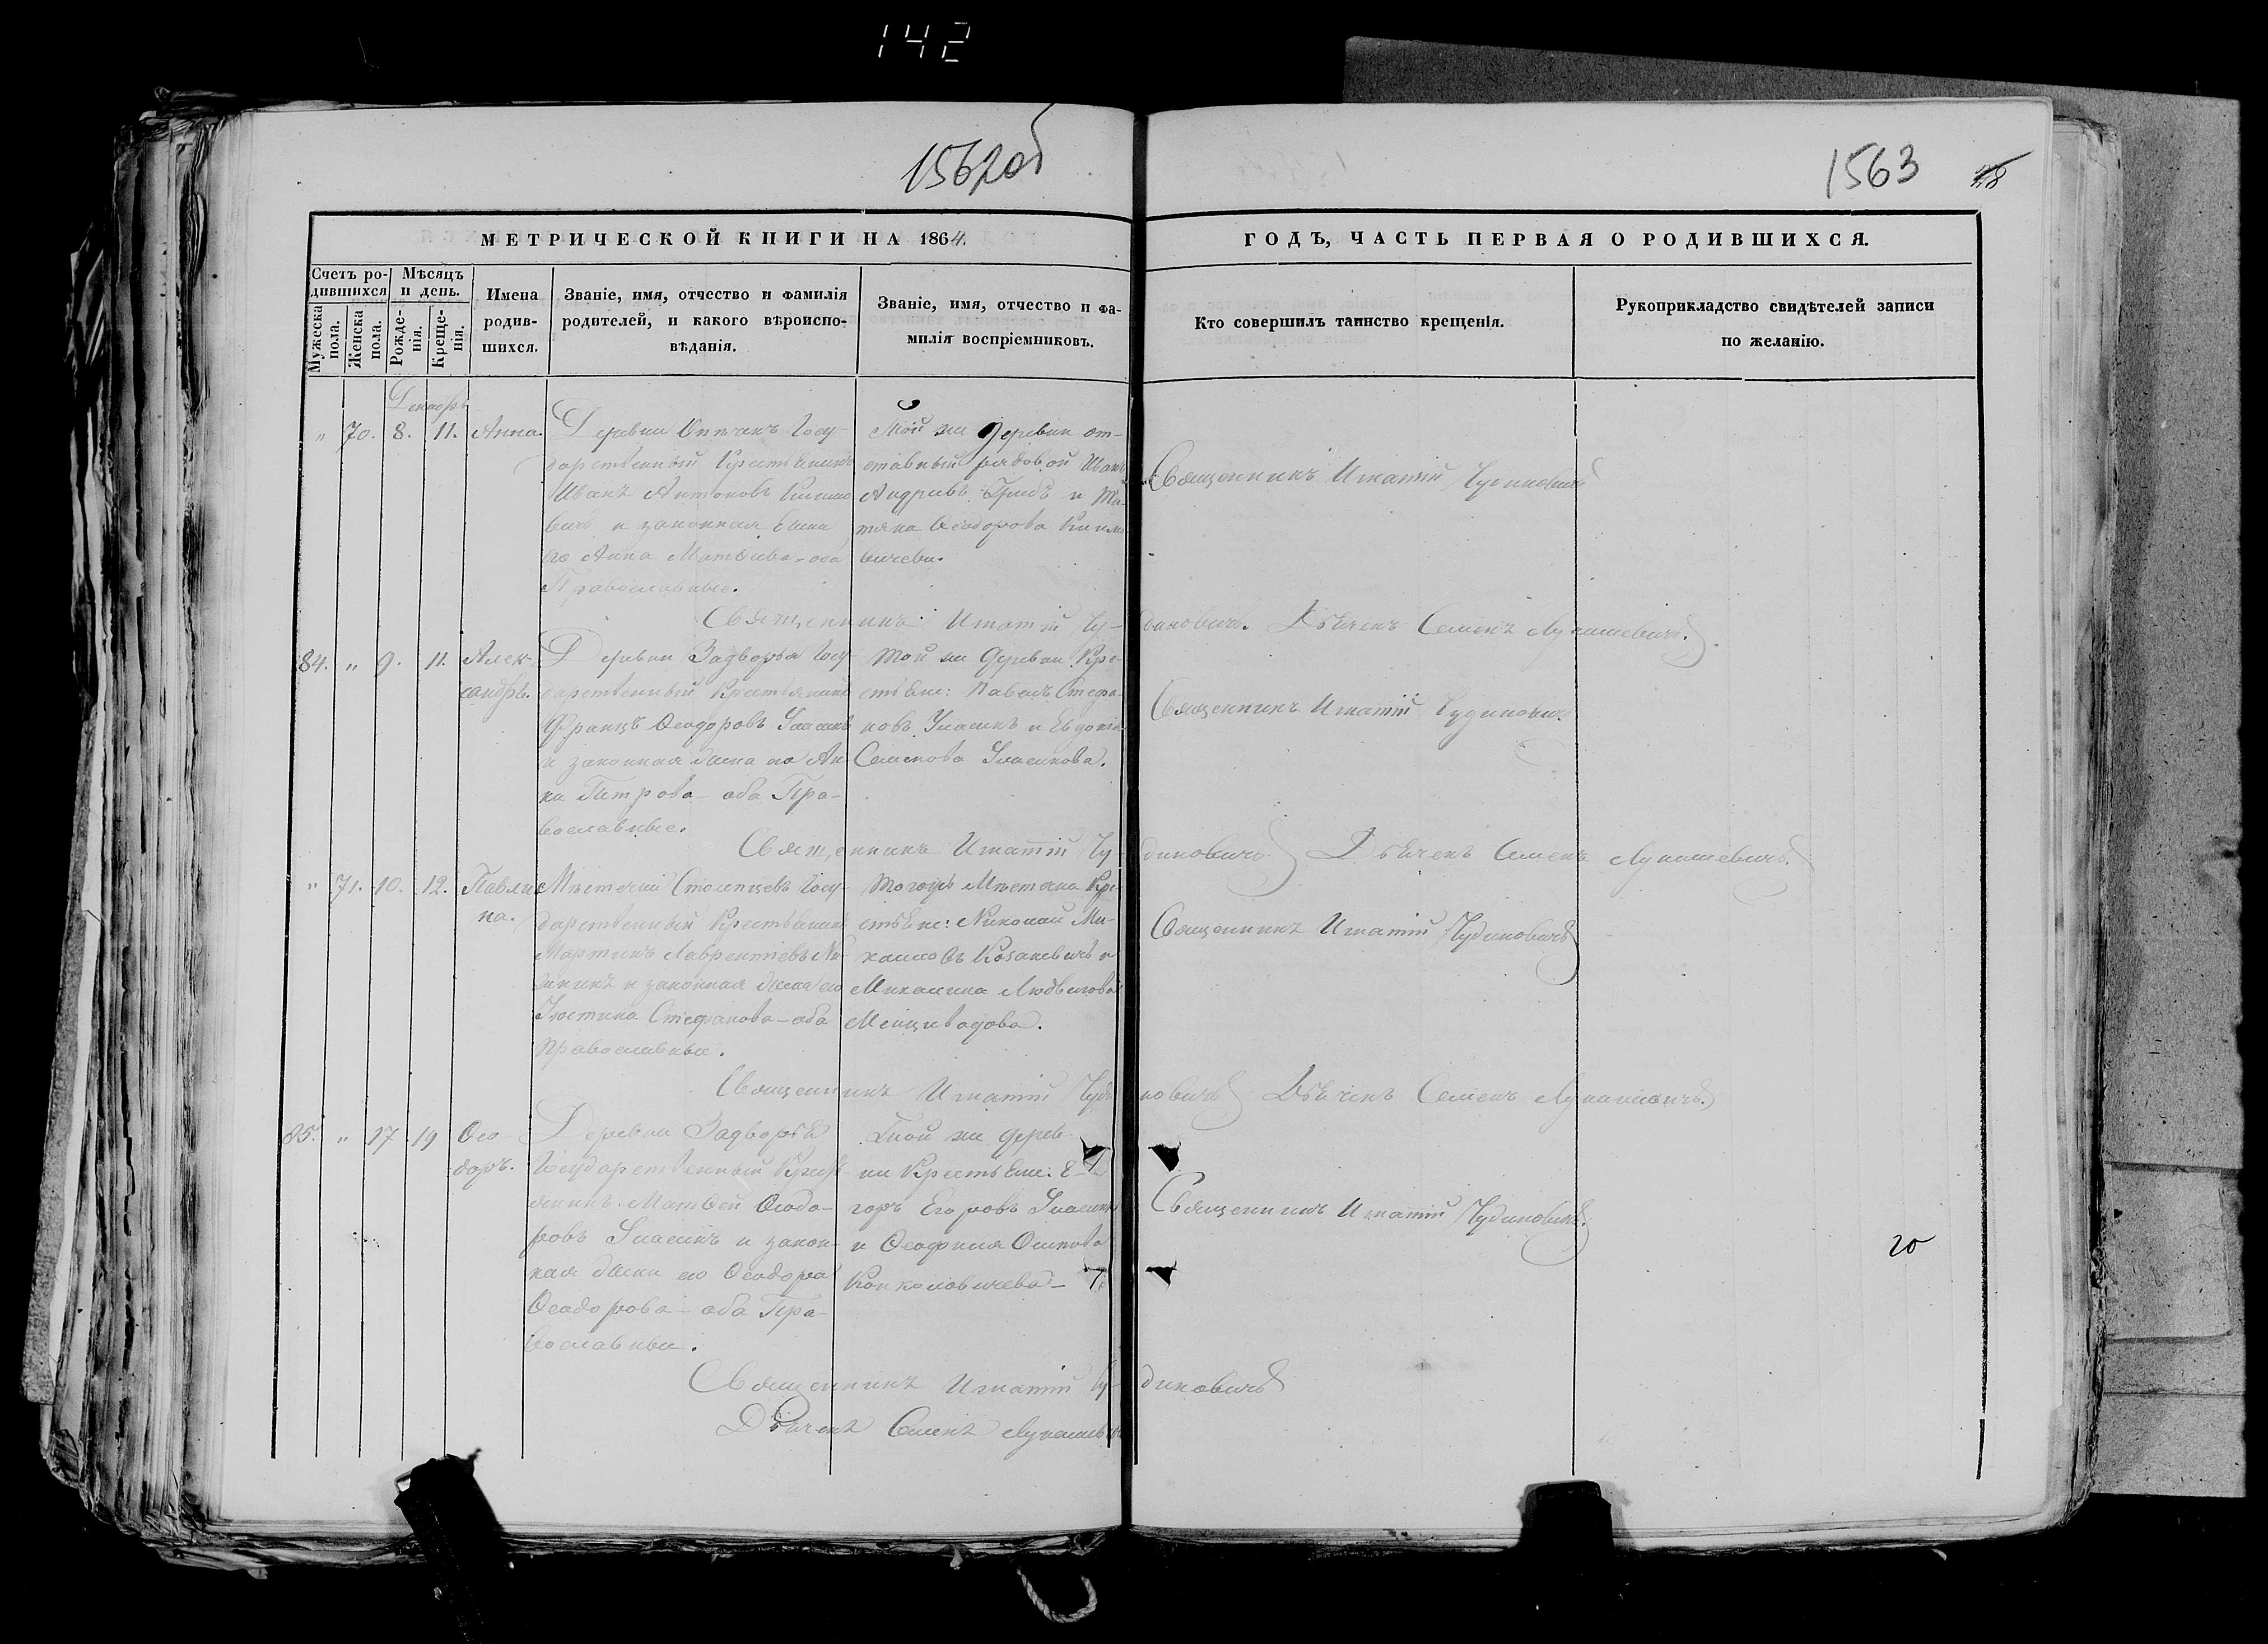 142
1562об
1563
МЕТРИЧЕСКОЙ КНИГИ НА 1864.
ГОДЪ, ЧАСТЬ ПЕРВАЯ О РОДИВШИХСЯ.
Счетъ ро-
дившихся
Мужеска
пола.
Женска
пола.
Мѣсяцъ
и день.
Рожде-
нія.
Креще-
нія.
Имена
родив-
шихся.
Званіе, имя, отчество и фамилія
родителей, и какого вѣроиспо-
вѣданія.
Званіе, имя, отчество и фа-
милія воспріемниковъ.
Кто совершилъ таинство крещенія.
Рукоприкладство свидѣтелей записи
по желанію.
Декабрь
" 70. 8. 11. Анна.
Деревни Госу-
дарственный Крестьянинъ
Иванъ Антоновъ
и законная жена
его Анна Матѳеева - оба
Православные.
Той же деревни от-
ставный рядовой Иванъ
и Та-
тяна Ѳеодорова
Священникъ Игнатій Чудиновичъ
Священникъ Игнатій Чу-
диновичъ. Дьячекъ Семенъ Лукашевичъ.
84. " 9. 11. Алек-
сандръ.
Деревни Задворья Госу-
дарственный Крестьянинъ
Францъ Ѳеодоровъ
и законная жена его Ан-
на Петрова - оба Пра-
вославные.
той же деревни Кре-
стьяне: Павелъ Стефа-
новъ и Евдокія
Семенова
Священникъ Игнатій Чудиновичъ
Священникъ Игнатій Чу-
диновичъ Дьячекъ Семенъ Лукашевичъ.
" 71. 10. 12. Павли-
на.
Мѣстечка Госу-
дарственный Крестьянинъ
Мартинъ Лаврентіевъ
и законная жена его
Іюстина Стефанова - оба
православные.
тогожъ Мѣстечка Кре-
стьяне: Николай Ми-
хаиловъ Козакевичъ и
Михалина Людвигова
Священникъ Игнатій Чудиновичъ
Священникъ Игнатій Чуди-
новичъ Дьячекъ Семенъ Лукашевичъ.
85. " 17 19 Ѳео-
доръ.
Деревни Задворья
Государственный Крест-
янинъ Матѳей Ѳеодо-
ровъ и закон-
ная жена его Ѳеодора
Ѳеодорова - оба Пра-
вославные.
Той же дерев-
ни Крестьяне: Е-
горъ Егоровъ
и Ѳеофиля Осипова
Священникъ Игнатій Чудиновичъ.
20
Священникъ Игнатій Чу-
диновичъ
Дьячекъ Семенъ Лукашевичъ